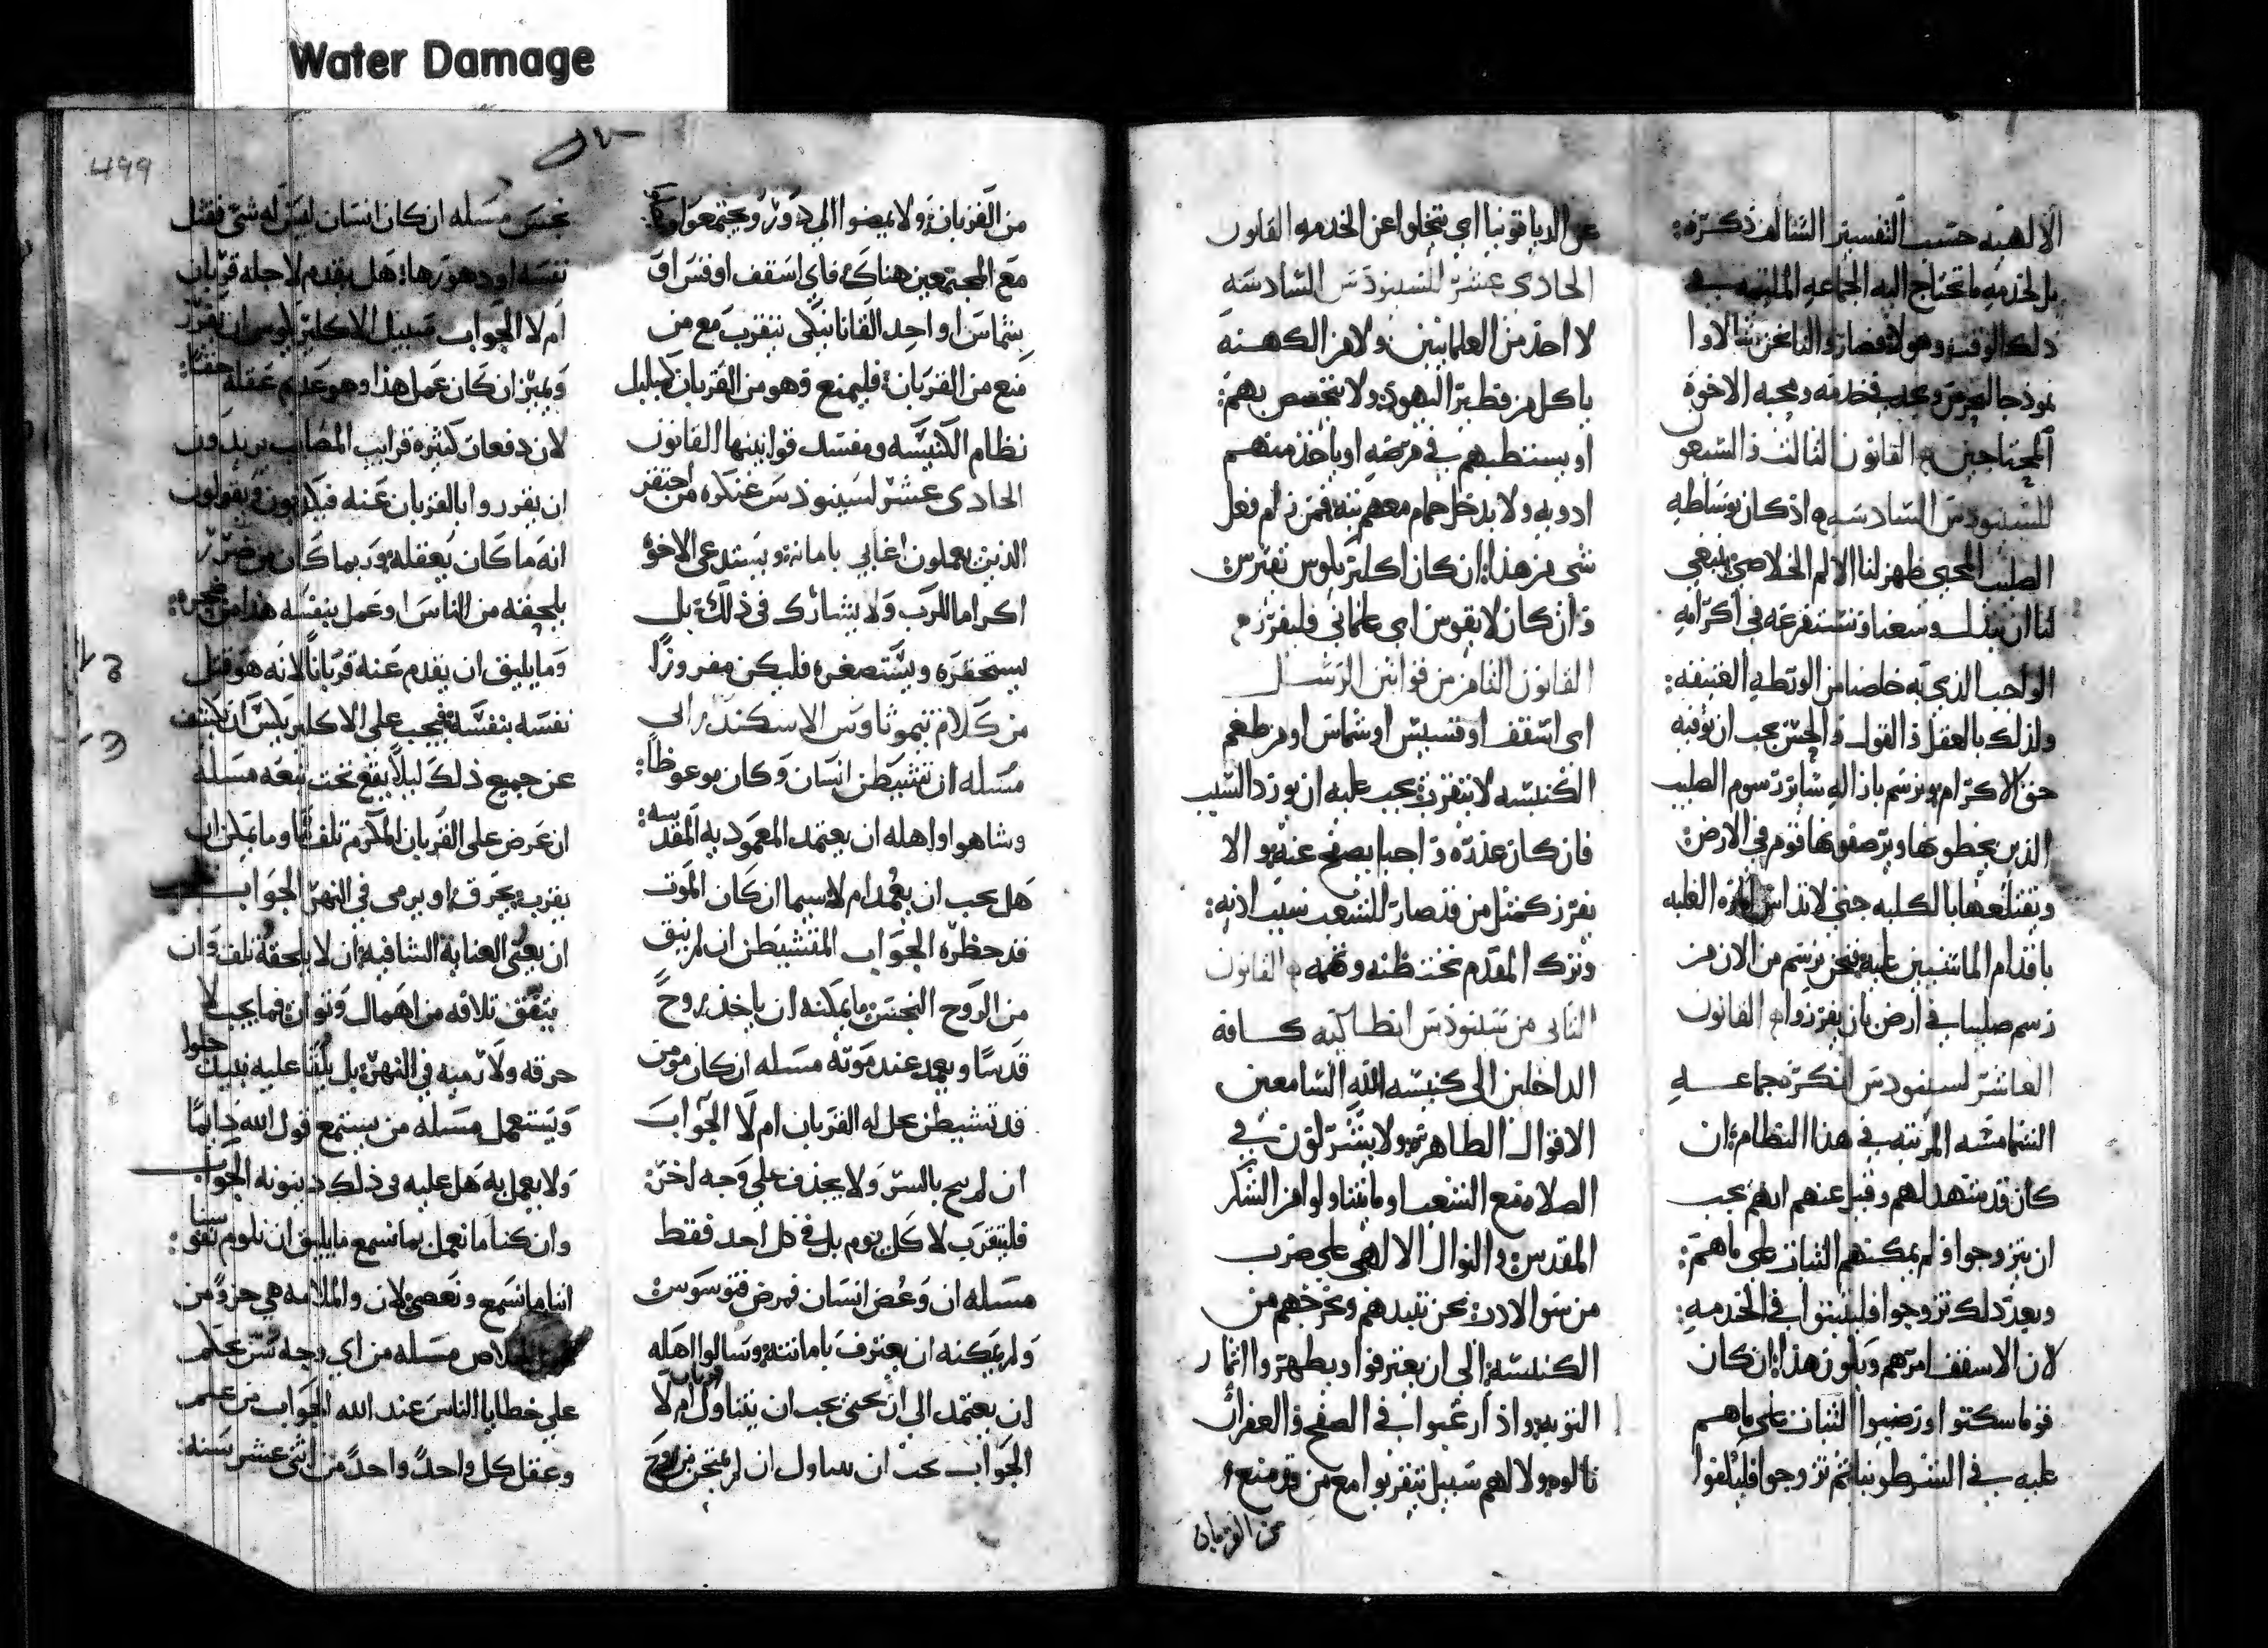 Water Damage
الالهيه حسب التفسير السالف ذكره:
بل لخدمه ما تحتاج اليه الجماعه الملتيمه في
ذلك الوقت وهولا فصاروا لنا نحن مثالا وا
نموذجا لخدمته ومحبه الاخوه
المحتاجين القانون الثالث والسبعو
للسينودس السادسه اذ كان بوساطه
الصليب المحيي ظهر لنا الالم الخلاصي ينبغي
لنا ان نبذل وسعنا ونستفرغه في اكرامه
الواجب الذي به خلصنا من الورطه العتيقه:
ولذلك بالعقل والقول والحس يجب ان نوفيه
حق الاكرام ونرسم بان اله ساير رسوم الصليب
الذين يخطونها ويرصفونها قوم في الارض
وتقتلعها بالكليه حتى لا تداس اماره الغلبه
باقدام الماشيين عليه فنحن نرسم من الان من
رسم صليبا في ارض بان يفرزوا القانون
العاشر لسينودس انكره جماعه
الشمامسه المرتبه في هذا النظام ان
كان قد شهدا لهم وقبل عنهم انهم يجب
ان يتزوجوا ولم يمكنهم الثبات على ما هم:
وبعد ذلك تزوجوا فليثبتوا في الخدمه:
لان الاسقف امرهم ويكون هذا ان كان
قوما سكتوا ورضيوا الثبات على ما هم
عليه في الشرطونيا ثم تزوجوا فليلقوا
عن الدياقونيا اي يتخلوا عن الخدمه القانون
الحادي عشر للسينودس السادسه
لا احد من العلمانيين ولا من الكهنه
ياكل من فطير اليهود ولا يختص بهم:
او يستطبهم في مرضه او ياخذ منهم
ادويه ولا يدخل حمام معهم بته فمن رام فعل
شي من هذا ان كان اكليريلوس تفترس
وان كان لايقوس اي علماني فليفرز
القانون الثامن من قوانين الرسل
اي اسقف او قسيس او شماس او من طغم
الكنيسه لا يتقرب يجب عليه ان يورد السبب
فان كان عذره واجبا يصفح عنه والا
يفرز كمثل من قد صار للشعب سبب اذيه:
وترك المقدم تحت ظنه وتهمه القانون
الثاني من سينودس انطاكيه كافه
الداخلين الى كنيسه الله السامعين
الاقوال الطاهره ولا يشتركون في
الصلاه مع الشعب او ما يتناولوا من الشكر
المقدس والنوال الالهي على ضرب
من سو الادب نحن نبيدهم ونخرجهم من
الكنيسه الى ان يعترفوا ويظهروا اثمار
التوبه واذا رغبوا في الصفح والغفران
نالوه ولا لهم سبيل يتقربوا مع من قد منع
من القربان
من القربان ولا يمضوا الى دور ويجتمعوا
مع المجتمعين هناك فاي اسقف او قس او
شماس او احد القانانيكي يتقرب مع من
منع من القربان فليمنع وهو من القربان كمبلبل
نظام الكنيسه ومفسد قوانينها القانون
الحادي عشر لسينودس عنكره من احتقر
الذين يعملون اغابي بامانه ويستدعى الاخوه
اكراما للرب ولا يشارك في ذلك بل
يستحقره ويستصغره فليكن مفروزا
من كلام تيموثاوس الاسكندراني
مسله ان تشيطن انسان وكان موعوظا:
وشاهو او اهله ان يعتمد المعموديه المقدسه:
هل يجب ان يعمد ام لا سيما ان كان الموت
قد حظره الجواب المتشيطن ان لم ينق
من الروح النجس ما يمكنه ان ياخذ روح
قدسا ويعمد عند موته مسله ان كان مومن
قد تشيطن يحل له القربان ام لا الجواب
ان لم يبح بالسر ولا يجدف على وجه اخر:
فليتقرب لا كل يوم بل في كل احد فقط
مسله ان وعض انسان فمرض فتوسوس
ولم يمكنه ان يعترف بامانته وسالوا اهله
ان يعتمد الى ان يحيى يجب ان يتناول قربان ام لا
الجواب يجب ان يتناول ان لم يمتحن من روح
499
نجس مسله ان كان انسان ليس له شي فقتل
نفسه او دهورها هل يقدم لاجله قربان
ام لا الجواب سبيل الاكليريلوس ان يقرر
ويميز ان كان عمل هذا وهو عديم عقله حقا:
لان دفعات كثيره قرايب المصاب يريدون
ان يقرروا بالقربان عنه فيكذبون ويقولون
انه ما كان يعقله وربما كان من ضرر
يلحقه من الناس او عمل بنفسه هذا من ضجره:
وما يليق ان يقدم عنه قربانا لانه هو قتل
نفسه بنفسه فيجب على الاكليريلس ان يكشف
عن جميع ذلك ليلا يقع تحت تبعه مسله
ان عرض على القربان المكرم تلف ما وما يمكن ان
يقرب يحرق او يرمى في النهر الجواب يجب
ان يعنى العنايه الشافيه ان لا يلحقه تلف وان
يتفق تلافه من اهمال وتوان فما يجب لا
حرقه ولا رميه في النهر بل يلقا عليه نبيذ حلوا
ويستعمل مسله من يستمع قول الله دايما
ولا يعمل به هل عليه في ذلك دينونه الجواب
وان كنا ما نعمل بما نسمع ما يليق ان نلوم نفوسنا:
اننا ما نسمع ونعصي لان والملامه هي جزو من
الخلاص مسله من اي وجه سر يحكم
على خطايا الناس عند الله الجواب من علم
وعقل كل واحد واحد من اثنى عشر سنه: